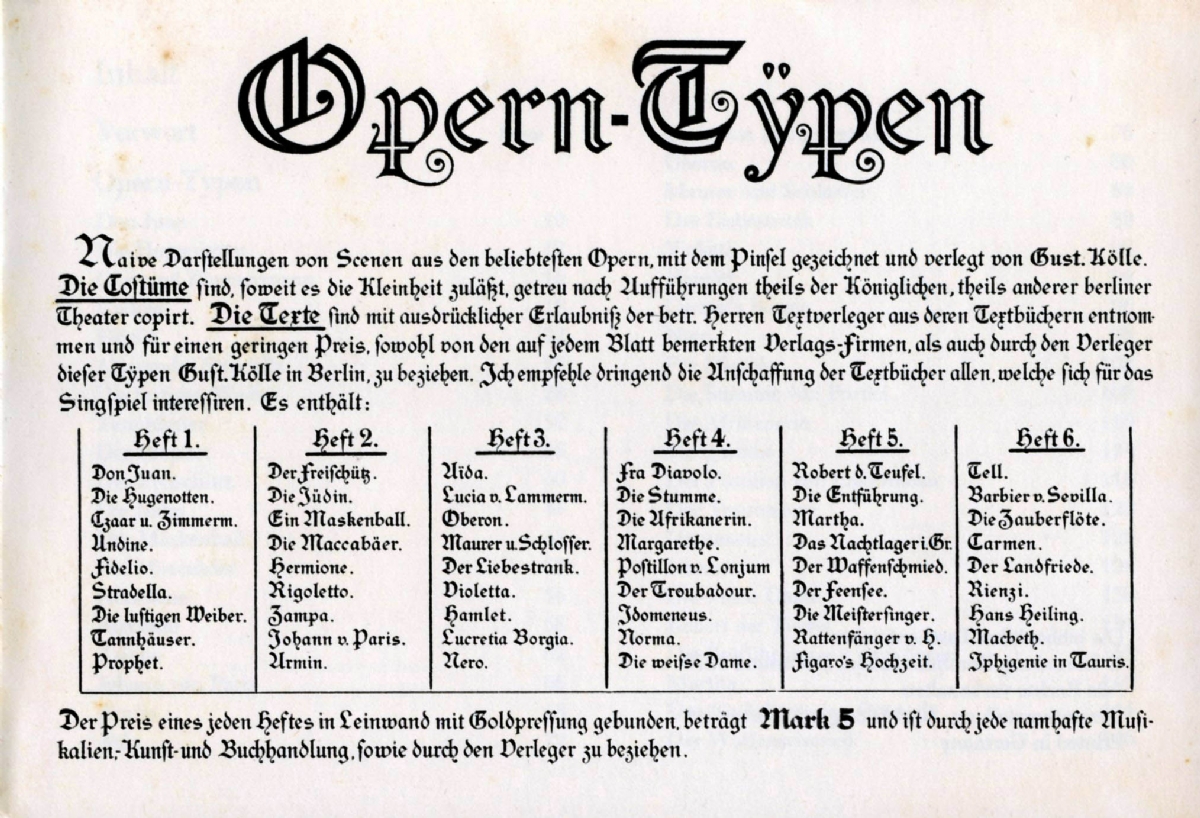 Opern-Tÿpen
Naive Darstellungen von Scenen aus den beliebtesten Opern, mit dem Pinsel gezeichnet und verlegt von Gust. Kölle.
Die Costüme sind, soweit es die Kleinheit zuläßt, getreu nach Aufführungen theils der Königlichen, theils anderer berliner
Theater copirt. Die Texte sind mit ausdrücklicher Erlaubniß der betr. Herren Textverleger aus deren Textbüchern entnom-
men und für einen geringen Preis, sowohl von den auf jedem Blatt bemerkten Verlags-Firmen, als auch durch den Verleger
dieser Tÿpen Gust. Kölle in Berlin, zu beziehen. Ich empfehle dringend die Anschaffung der Textbücher allen, welche sich für das
Singspiel interessiren. Es enthält:
Heft 1.
Don Juan.
Die Hugenotten.
Czaar u. Zimmerm.
Undine.
Fidelio.
Stradella.
Die lustigen Weiber.
Tannhäuser.
Prophet.
Heft 2.
Der Freischütz.
Die Jüdin.
Ein Maskenball.
Die Maccabäer.
Hermione.
Rigoletto.
Zampa.
Johann v. Paris.
Armin.
Heft 3.
Aida.
Lucia v. Lammerm.
Oberon.
Maurer u. Schlosser.
Der Liebestrank.
Violetta.
Hamlet.
Lucretia Borgia.
Nero.
Heft 4.
Fra Diavolo.
Die Stumme.
Die Afrikanerin.
Margarethe.
Postillon v. Lonjum
Der Troubadour.
Idomeneus.
Norma.
Die weisse Dame.
Heft 5.
Robert d. Teufel.
Die Entführung.
Martha.
Das Nachtlager i. Gr.
Der Waffenschmied.
Der Feensee.
Die Meistersinger.
Rattenfänger v. H.
Figaro's Hochzeit.
Heft 6.
Tell.
Barbier v. Sevilla.
Die Zauberflöte.
Carmen.
Der Landfriede.
Rienzi.
Hans Heiling.
Macbeth.
Iphigenie in Tauris.
Der Preis eines jeden Heftes in Leinwand mit Goldpressung gebunden, beträgt Mark 5 und ist durch jede namhafte Musi-
kalien-, Kunst- und Buchhandlung, sowie durch den Verleger zu beziehen.